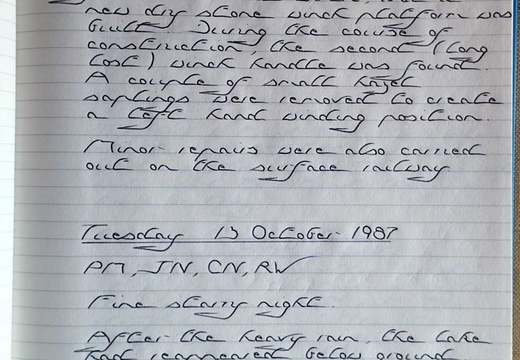 new dry stone winch platform was
built. During the course of
construction, the second (long
lost) winch handle was found.
A couple of small hazel
saplings were removed to create
a left hand winding position.
Minor repairs were also carried
out on the surface railway
Tuesday 13 October 1987
PM, JN, CN, RW
Fine starry night.
After the heavy rain, the lake
had reappeared below ground